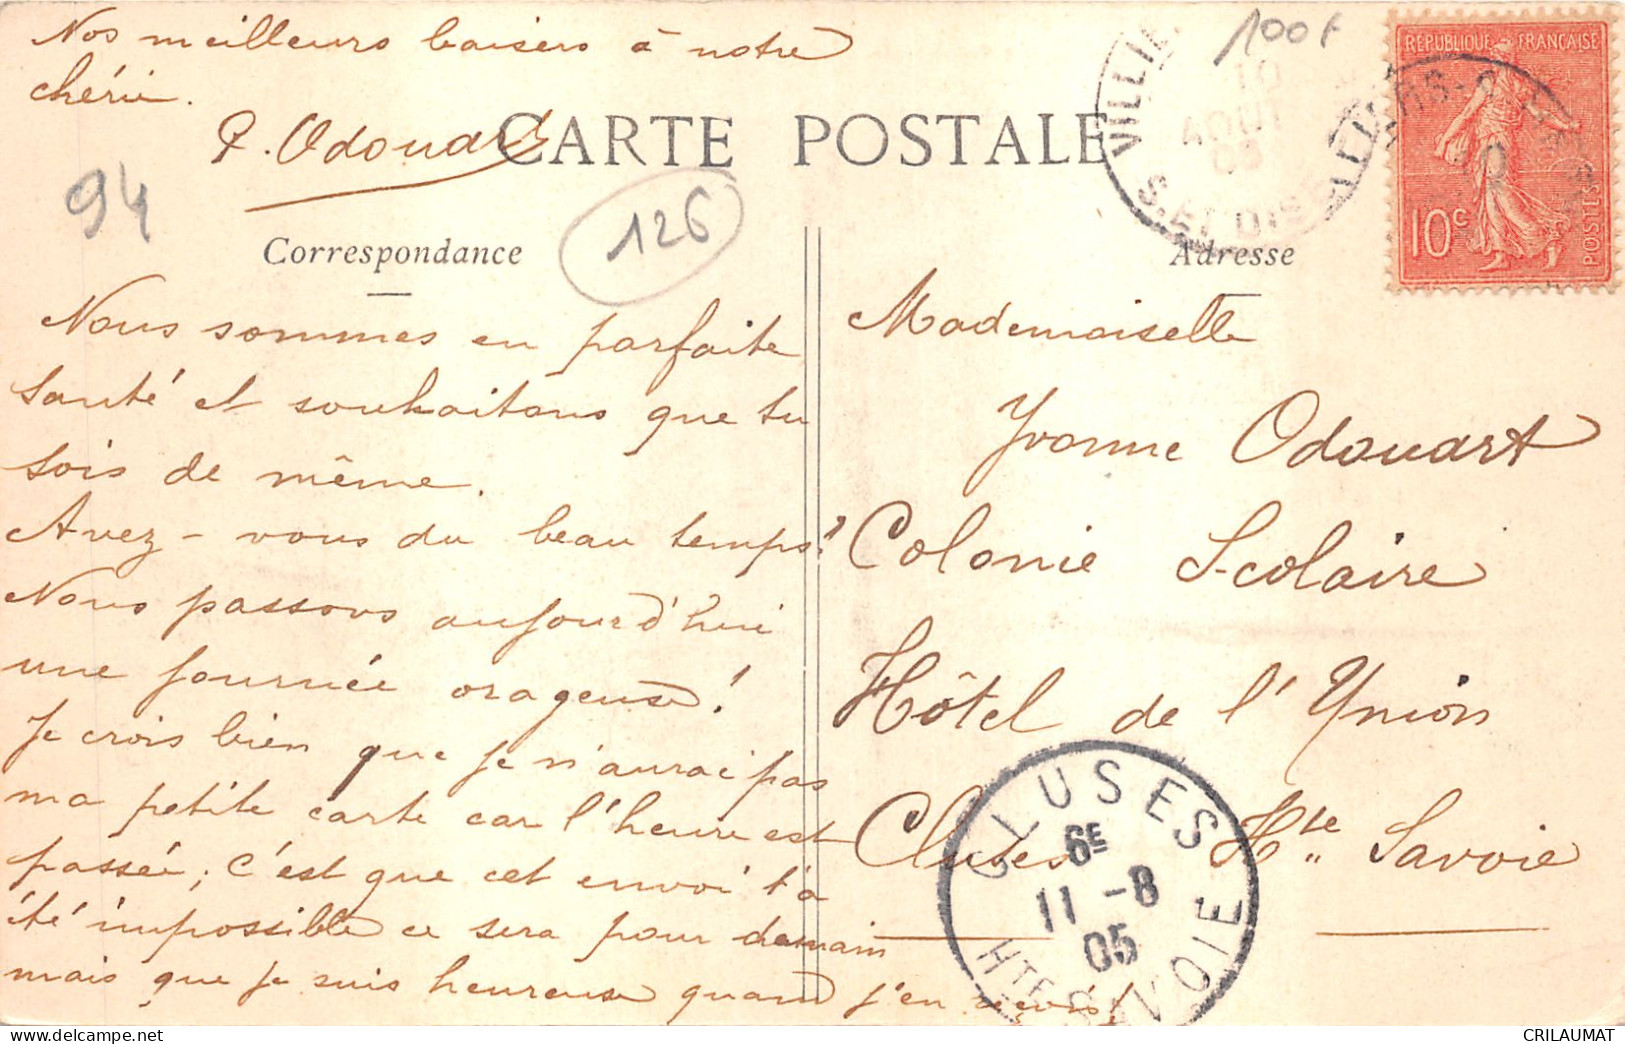 Nos meilleurs baisers à notre
chérie.
P. Odouart
CARTE POSTALE
94
126
100F
Correspondance
Adresse
RÉPUBLIQUE FRANÇAISE
10c
POSTES
10
AOUT
05
S. ET OISE
Nous sommes en parfaite
santé et souhaitons que tu
sois de même.
Avez-vous du beau temps?
Nous passons aujourd'hui
une journée orageuse!
Je crois bien que je n'aurai pas
ma petite carte car l'heure est
passée; c'est que cet envoi t'a
été impossible ce sera pour demain
mais que je suis heureuse quand j'en reçois!
Mademoiselle
Yvonne Odouart
Colonie Scolaire
Hôtel de l'Union
Cluses Hte Savoie
CLUSES
6E
11 -8
05
HTE SAVOIE
CRILAUMAT